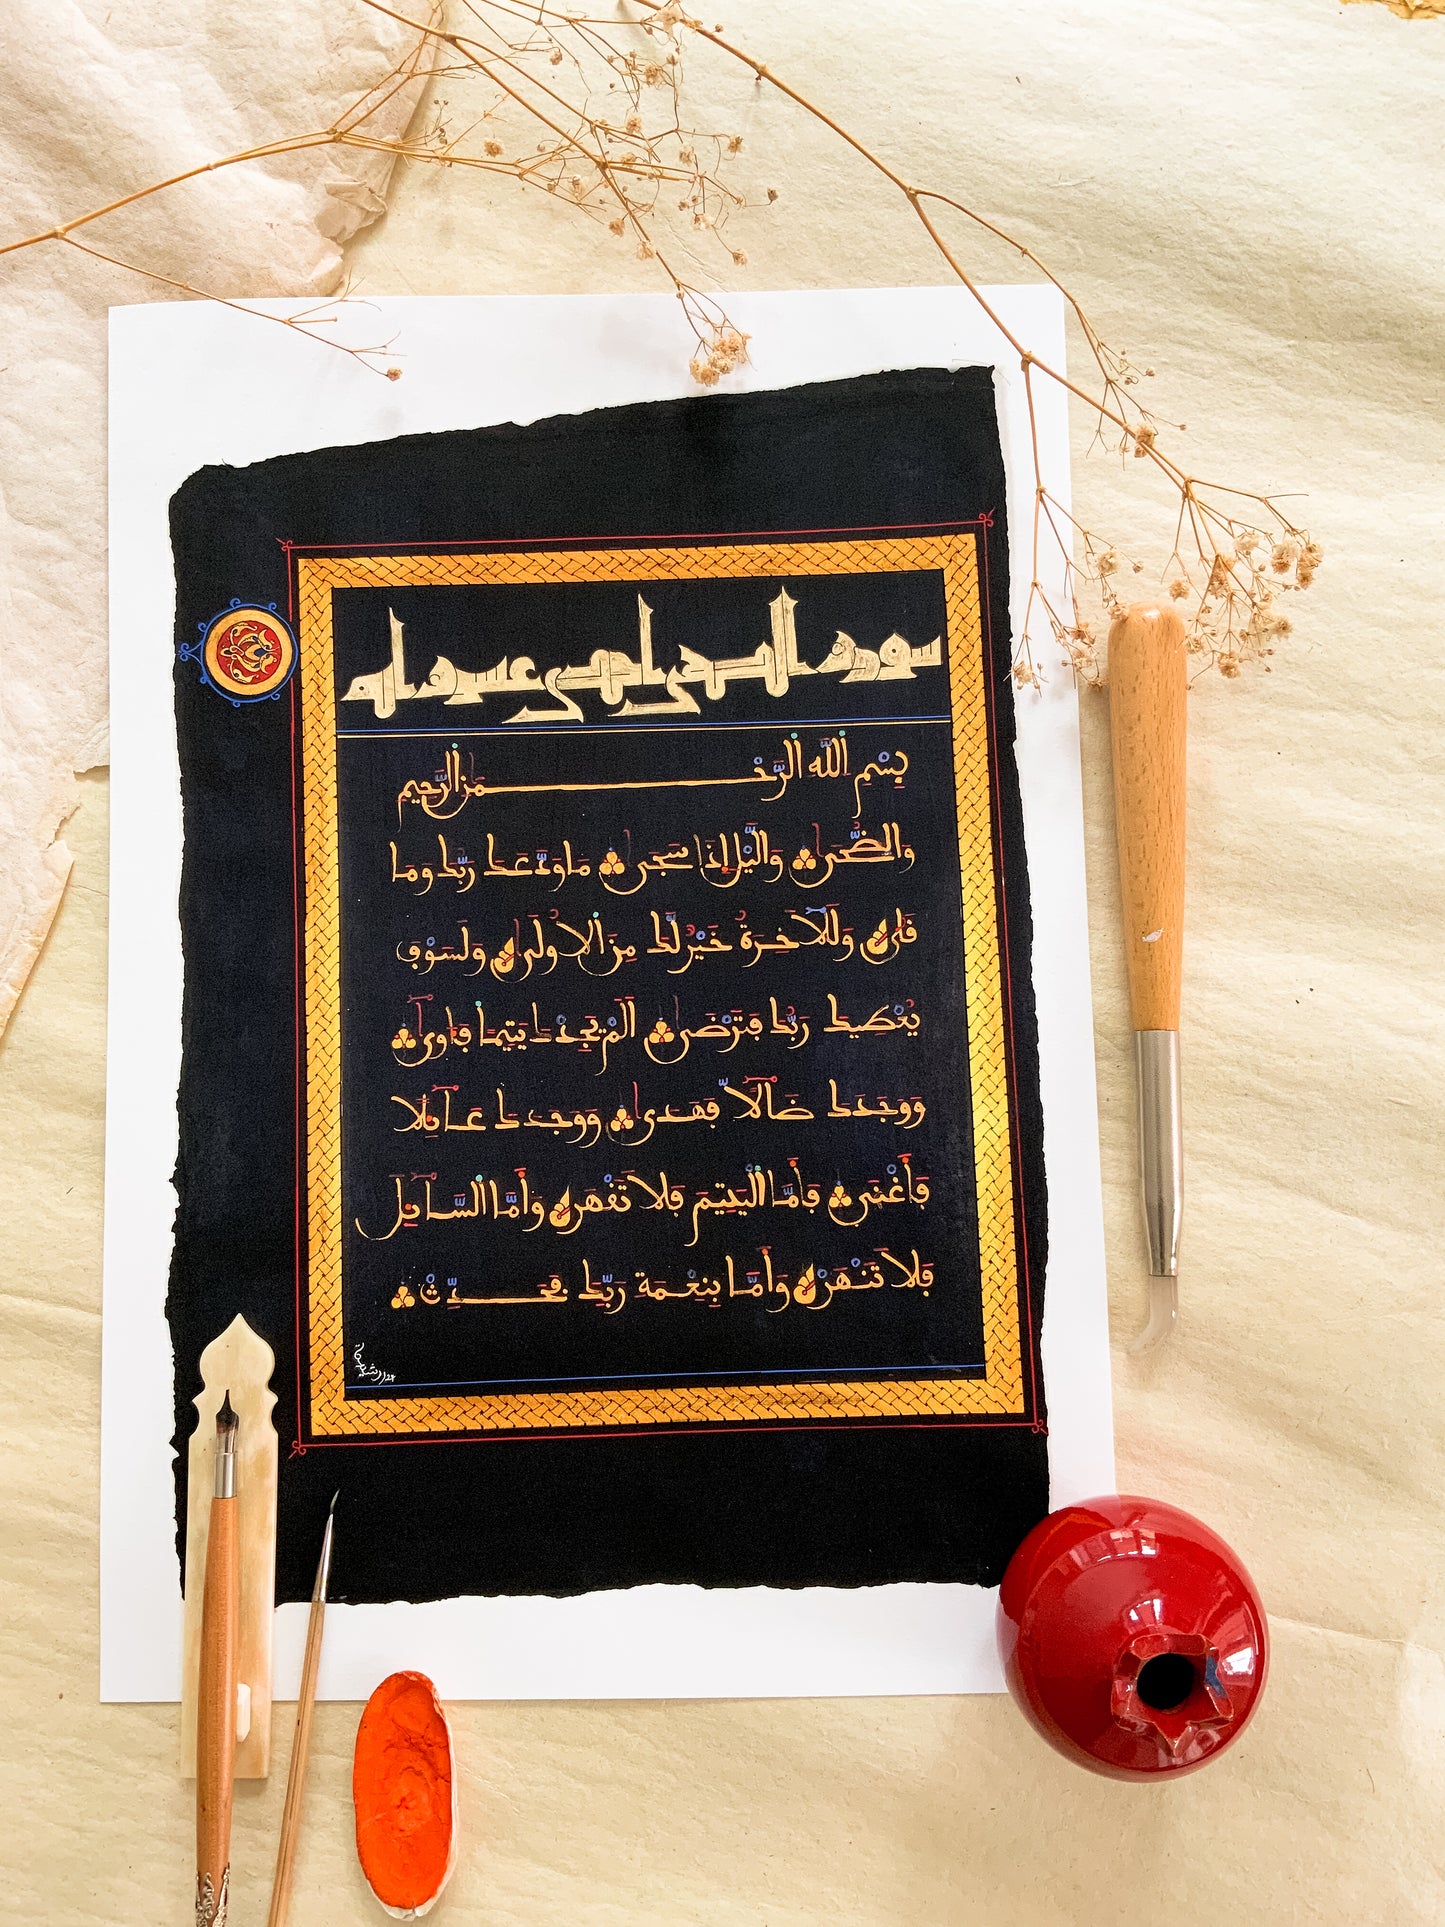 سورة الضحى احدى عشر اية
بِسْمِ اللَّهِ الرَّحْمَٰنِ الرَّحِيمِ
وَالضُّحَىٰ وَالَّيْلِ إِذَا سَجَىٰ مَا وَدَّعَكَ رَبُّكَ وَمَا
قَلَىٰ وَلَلْآخِرَةُ خَيْرٌ لَّكَ مِنَ الْأُولَىٰ وَلَسَوْفَ
يُعْطِيكَ رَبُّكَ فَتَرْضَىٰ أَلَمْ يَجِدْكَ يَتِيمًا فَآوَىٰ
وَوَجَدَكَ ضَآلًّا فَهَدَىٰ وَوَجَدَكَ عَآئِلًا
فَأَغْنَىٰ فَأَمَّا الْيَتِيمَ فَلَا تَقْهَرْ وَأَمَّا السَّآئِلَ
فَلَا تَنْهَرْ وَأَمَّا بِنِعْمَةِ رَبِّكَ فَحَدِّثْ